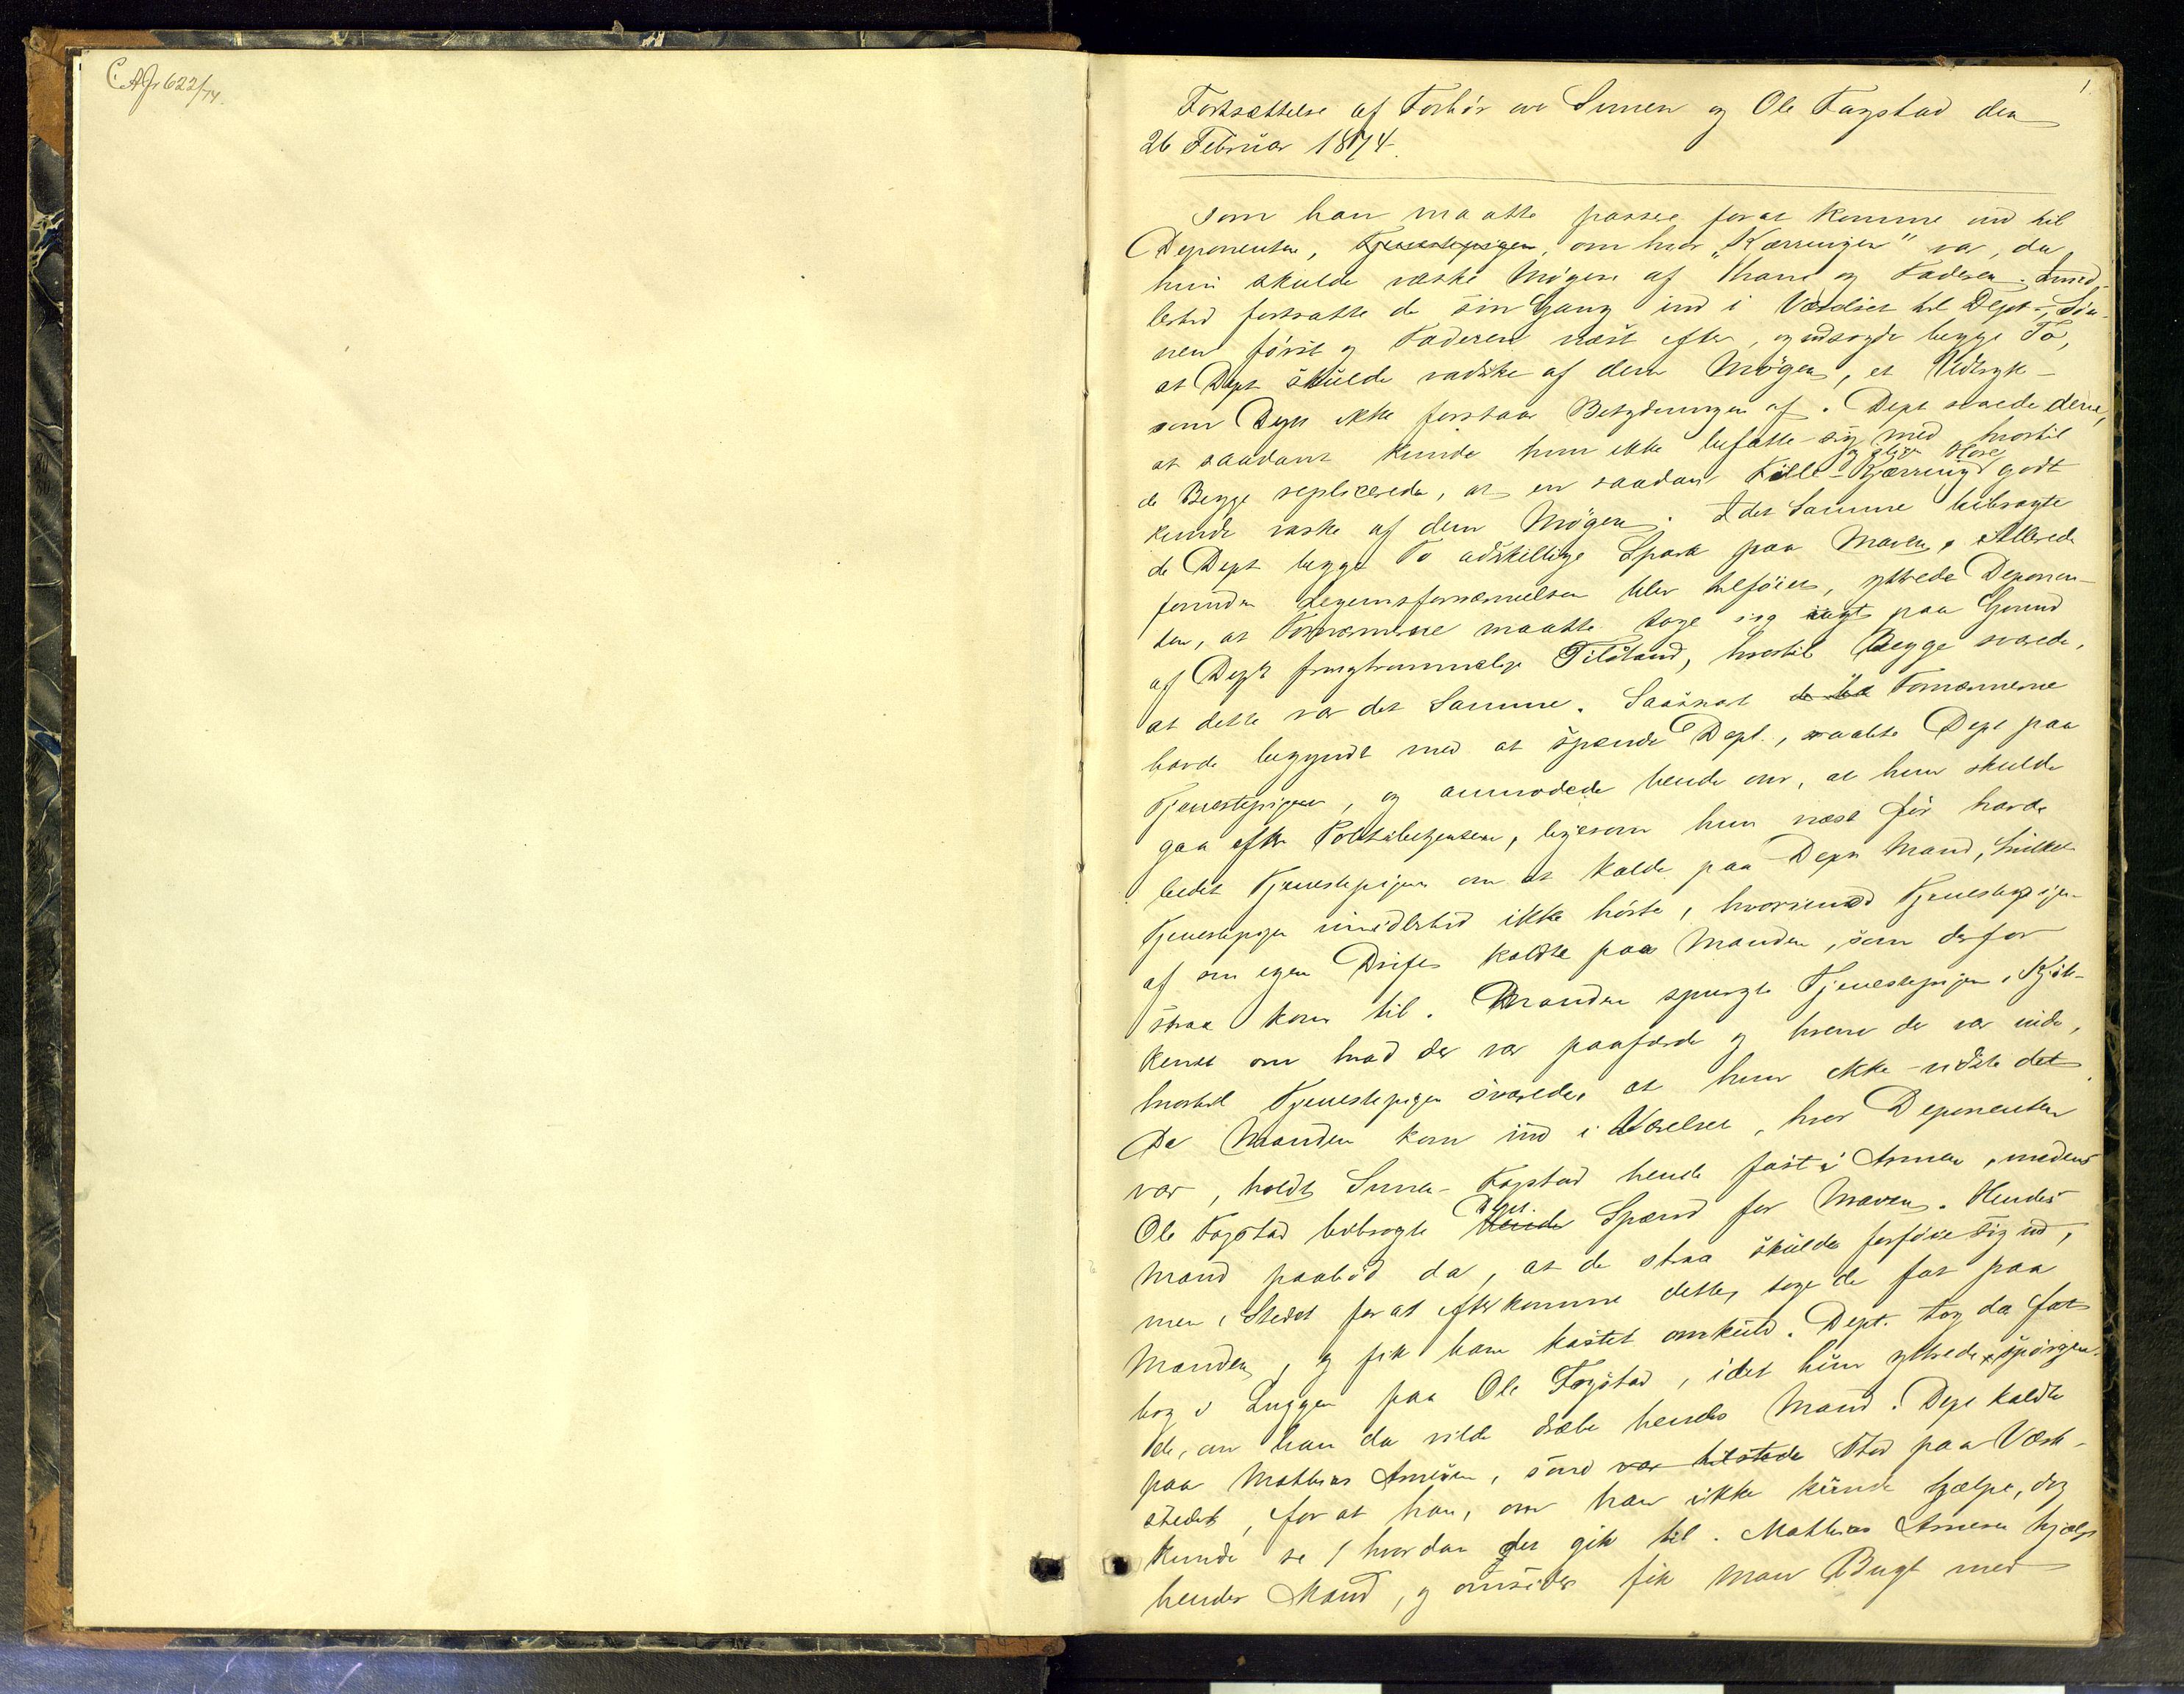 C. A Jr 622/74.
1.
Fortsættelse af Forhør over Simen og Ole Fagstad den
26 Februar 1874.
som han maatte passere forat komme ind til
Deponenten, Tjenestepigen, om hvor "Kærringen" var, da
hun skulde vaske Møgen af ham og Faderen. Imid-
lertid fortsatte de sin Gang ind i Værelset til Dept., Søn-
nen først og Faderen næst efter, og udsagde begge To,
at Dept skulde vadske af dem Møgen, et Udtryk
som Dept ikke forstaar Betydningen af. Dept svarede dem,
at saadant kunde hun ikke befatte sig med hvortil
de Begge replicerede, at en saadan Kille-Kjærring og Hore godt
kunde vaske af dem Møgen. I det Samme bibragte
de Dept begge To adskillige Spark paa Maven. Allerede
forinden Legemsfornærmelsen blev tilføiet, yttrede Deponen-
ten, at Fornærmerne maatte tage sig iagt paa Grund
af Depts frugtsommelige Tilstand, hvortil Begge svarede,
at dette var det Samme. Saasnart de to Fornærmerne
havde begyndt med at spænde Dept., raabte Dept paa
Tjenestepigen, og anmodede hende om, at hun skulde
gaa efter Politibetjenten, ligesom hun næst før havde
bedet Tjenestepigen om at kalde paa Depts Mand, hvilket
Tjenestepigen imidlertid ikke hørte, hvorimod Tjenestepigen
af sin egen Drift kaldte paa Manden, som derfor
strax kom til. Manden spurgte Tjenestepigen i Kjøk-
kenet om hvad der var paafærde og hvem der var inde,
hvortil Tjenestepigen svarede, at hun ikke vidste det.
Da Manden kom ind i Værelset, hvor Deponenten
var, holdt Simen Fagstad hende fast i Armen, medens
Ole Fagstad bibragte hende Dept. Spænd for Maven. Hendes
Mand paabød da, at de strax skulde forføie sig ud,
men i Stedet for at efterkomme dette, toge de fat paa
Manden, og fik ham kastet omkuld. Dept. tog da fat
bag i Luggen paa Ole Fagstad, idet hun yttrede spørgen-
de, om han da vilde dræbe hendes Mand. Dept kaldte
paa Mathias Arnesen, som var tilstede stod paa Værk-
stedet, for at han, om han ikke kunde hjælpe, dog
kunde se, hvordan det gik til. Mathias Arnesen hjalp
hendes Mand, og omsider fik man Bugt med